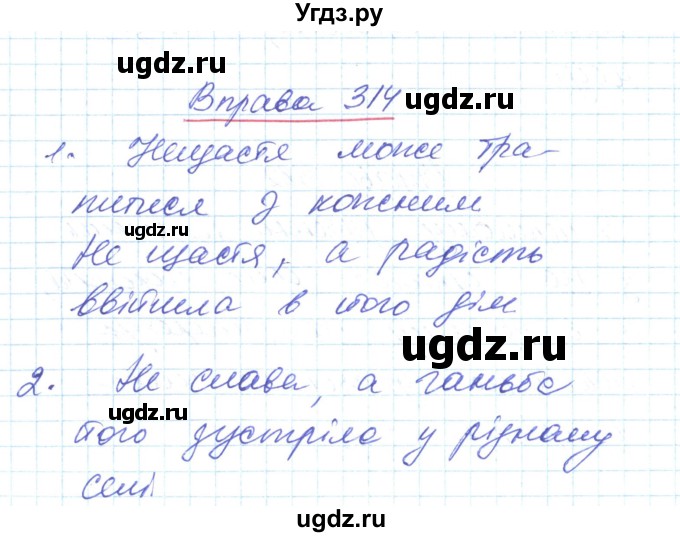 Угдз.ру
ugdz.ru
Вправа 314 ugdz.ru
1. Нещастя може тра-
питися з кожним
ugdz.ru
Не щастя, а радість
ввійшла в його дім
ugdz.ru
ugdz.ru
2. Не слава, а ганьба
ugdz.ru
його зустріла у рідному
селі
ugdz.ru
ugdz.ru